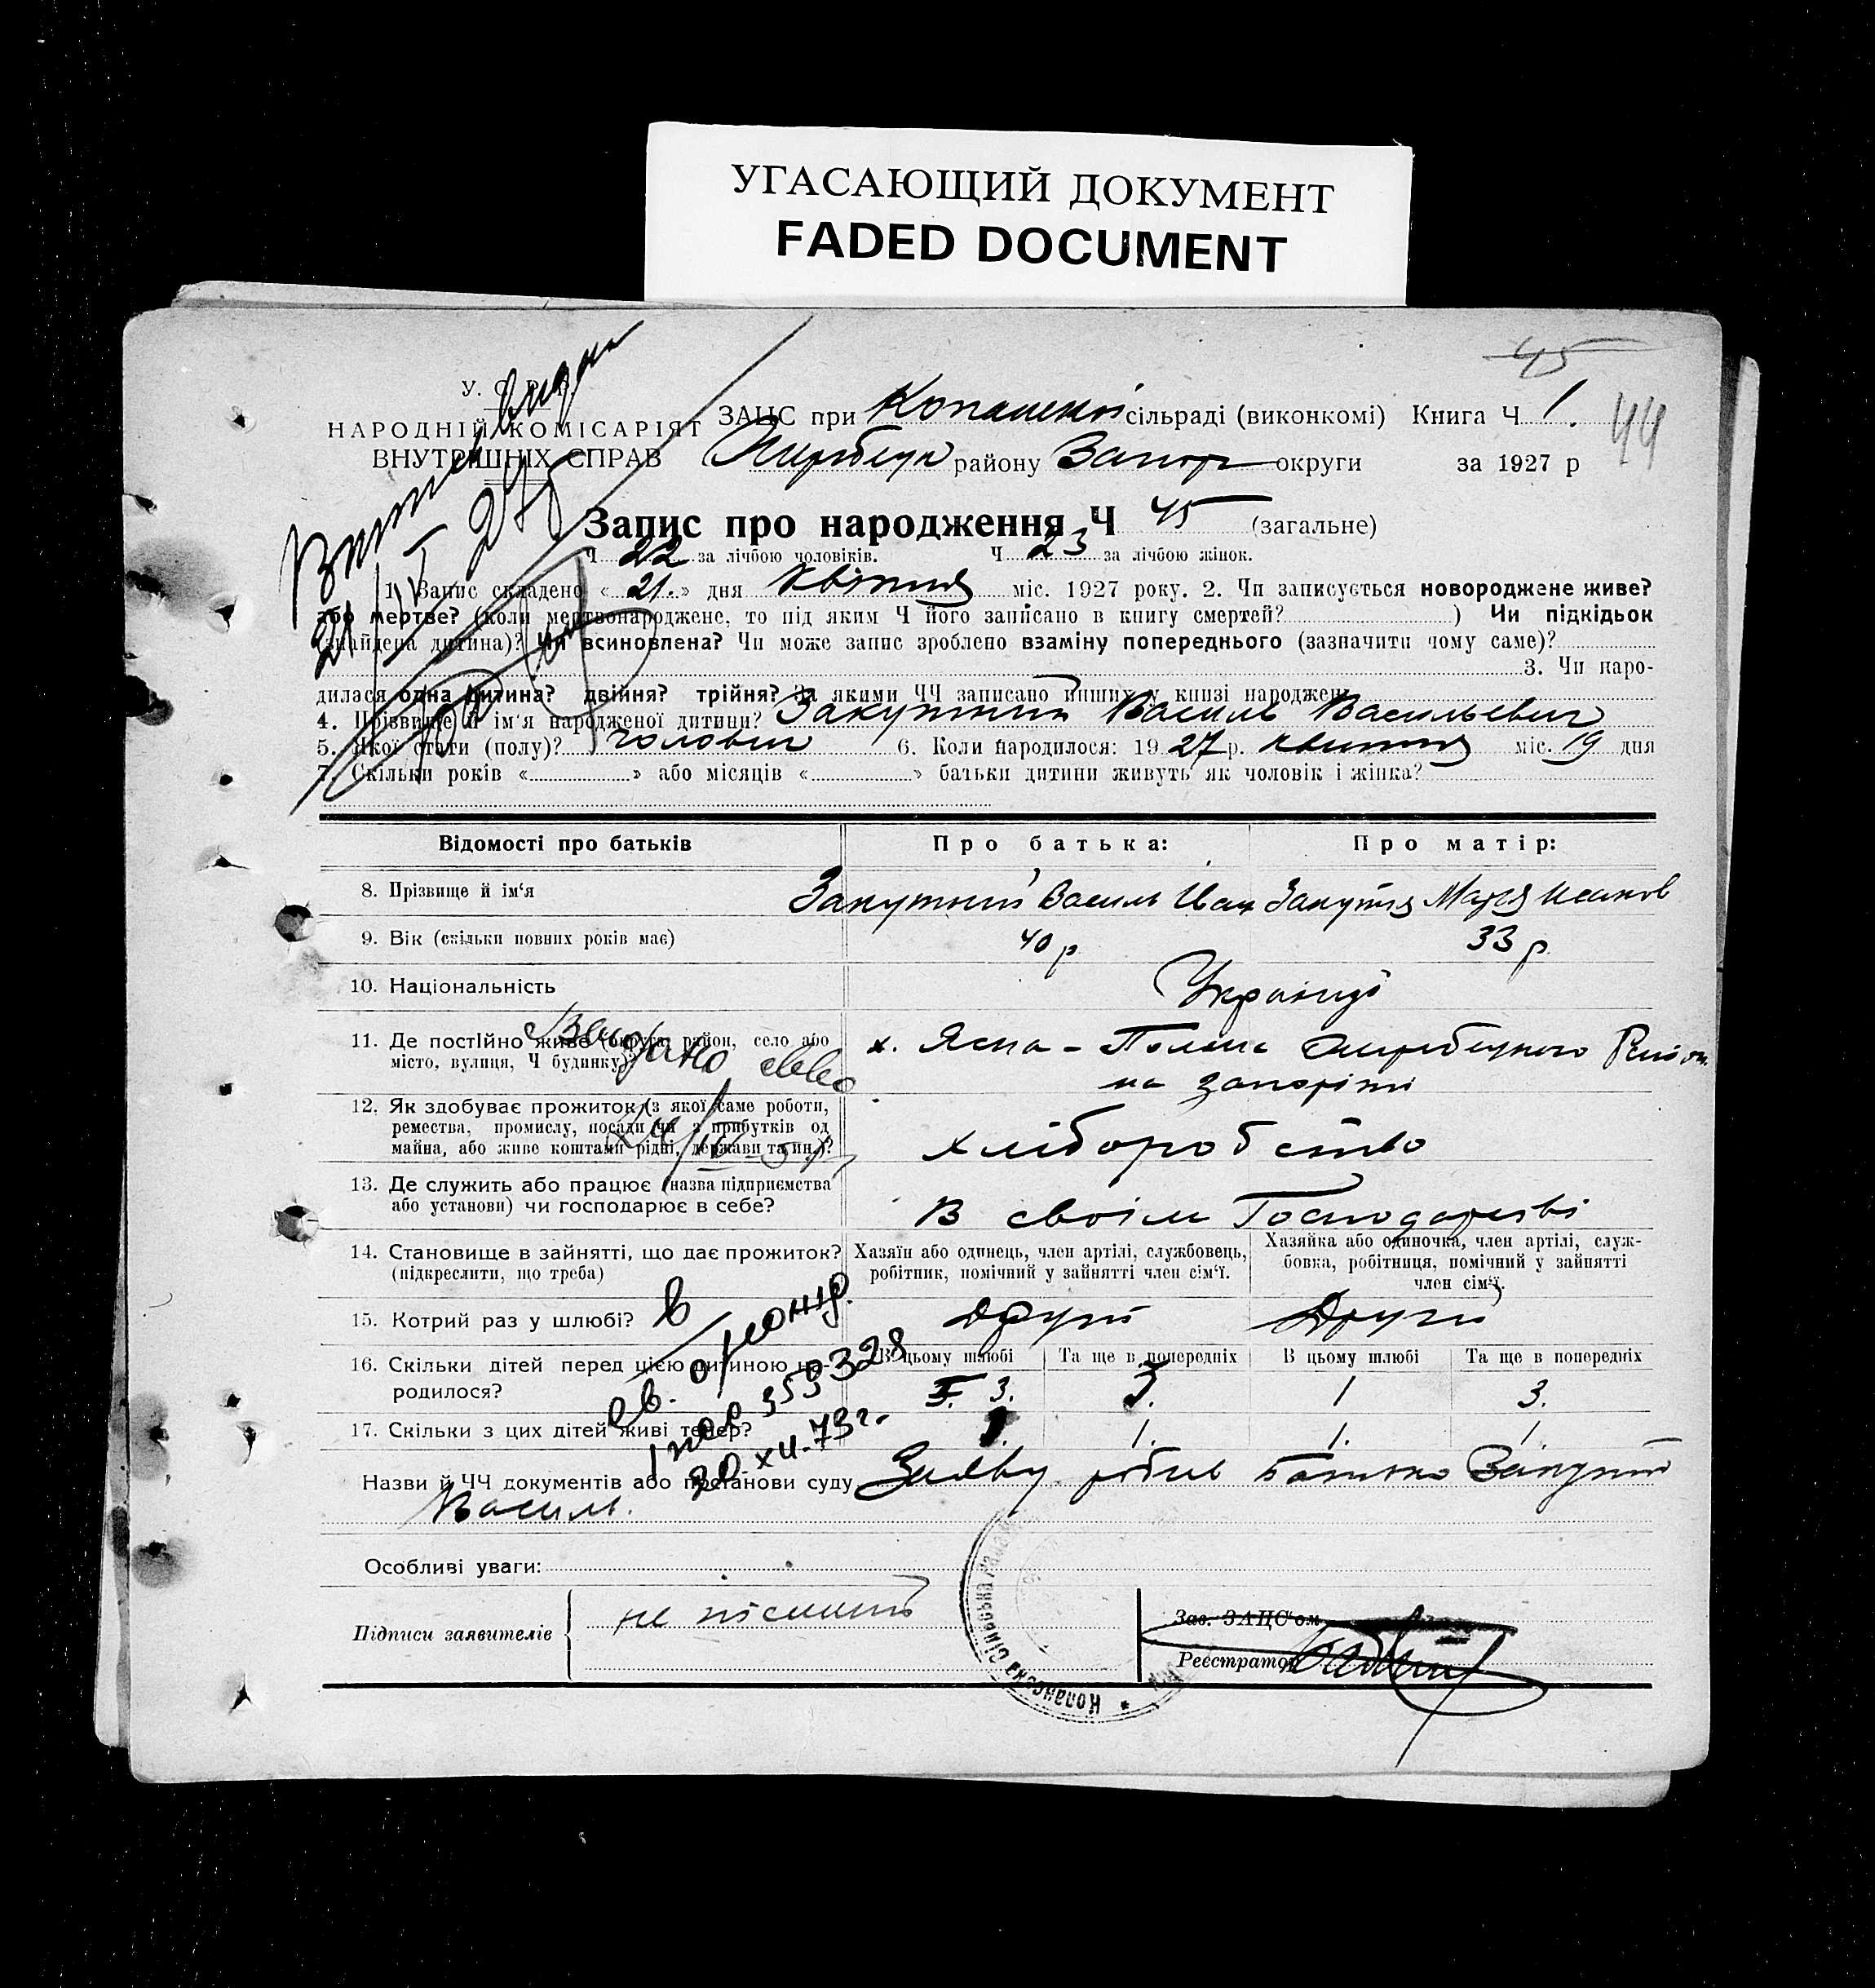 УГАСАЮЩИЙ ДОКУМЕНТ
FADED DOCUMENT
45
44
У. С. Р. Р.
НАРОДНІЙ КОМІСАРІЯТ
ВНУТРІШНІХ СПРАВ
ЗАЦС при сільраді (виконкомі) Книга Ч 1.
району Запор округи за 1927 р
Запис про народження Ч 45 (загальне)
Ч 22 за лічбою чоловіків. Ч 23 за лічбою жінок.
1. Запис складено «21.» дня квітня міс. 1927 року. 2. Чи записується новороджене живе?
або мертве? (коли мертвонароджене, то під яким Ч його записано в книгу смертей? ) Чи підкідьок
(знайдена дитина)? Чи всиновлена? Чи може запис зроблено взаміну попереднього (зазначити чому саме)?
3. Чи наро-
дилася одна дитина? двійня? трійня? За якими ЧЧ записано инших у книзі народжень
4. Прізвище й ім'я народженої дитини? Закутний Василь Васильевич
5. Якої стати (полу)? чоловіч 6. Коли народилося: 1927 р. квитня міс. 19 дня
7. Скільки років « » або місяців « » батьки дитини живуть як чоловік і жінка?
Відомості про батьків Про батька: Про матір:
8. Прізвище й ім'я Закутний Василь Иван Закутня Марія
9. Вік (скільки повних років має) 40 р 33 р.
10. Національність Українці
11. Де постійно живе (округа, район, село або
місто, вулиця, Ч будинку)? х. Ясна-Поляна
на запоріжі
12. Як здобуває прожиток (з якої саме роботи,
ремества, промислу, посади чи з прибутків од
майна, або живе коштами рідні, держави та ин.)? хліборобство
13. Де служить або працює (назва підприємства
або установи) чи господарює в себе? В своім Господарстві
14. Становище в зайнятті, що дає прожиток?
(підкреслити, що треба)
Хазяїн або одинець, член артілі, службовець,
робітник, помічний у зайнятті член сім'ї.
Хазяйка або одиночка, член артілі, служ-
бовка, робітниця, помічний у зайнятті
член сім'ї.
15. Котрий раз у шлюбі? Другий Другий
16. Скільки дітей перед цією дитиною на-
родилося?
В цьому шлюбі Та ще в попередніх В цьому шлюбі Та ще в попередніх
3. 3. 1 3.
17. Скільки з цих дітей живі тепер? 1. 1. 1.
Назви й ЧЧ документів або постанови суду Заяву робив батько Закутній
Василь.
Особливі уваги:
Підписи заявителів не письмений
Зав. ЗАЦС'ом
Реєстратор
Копанська Сільська Рада
Выпись видан
Видано св-во
353328
20.XII.73г.